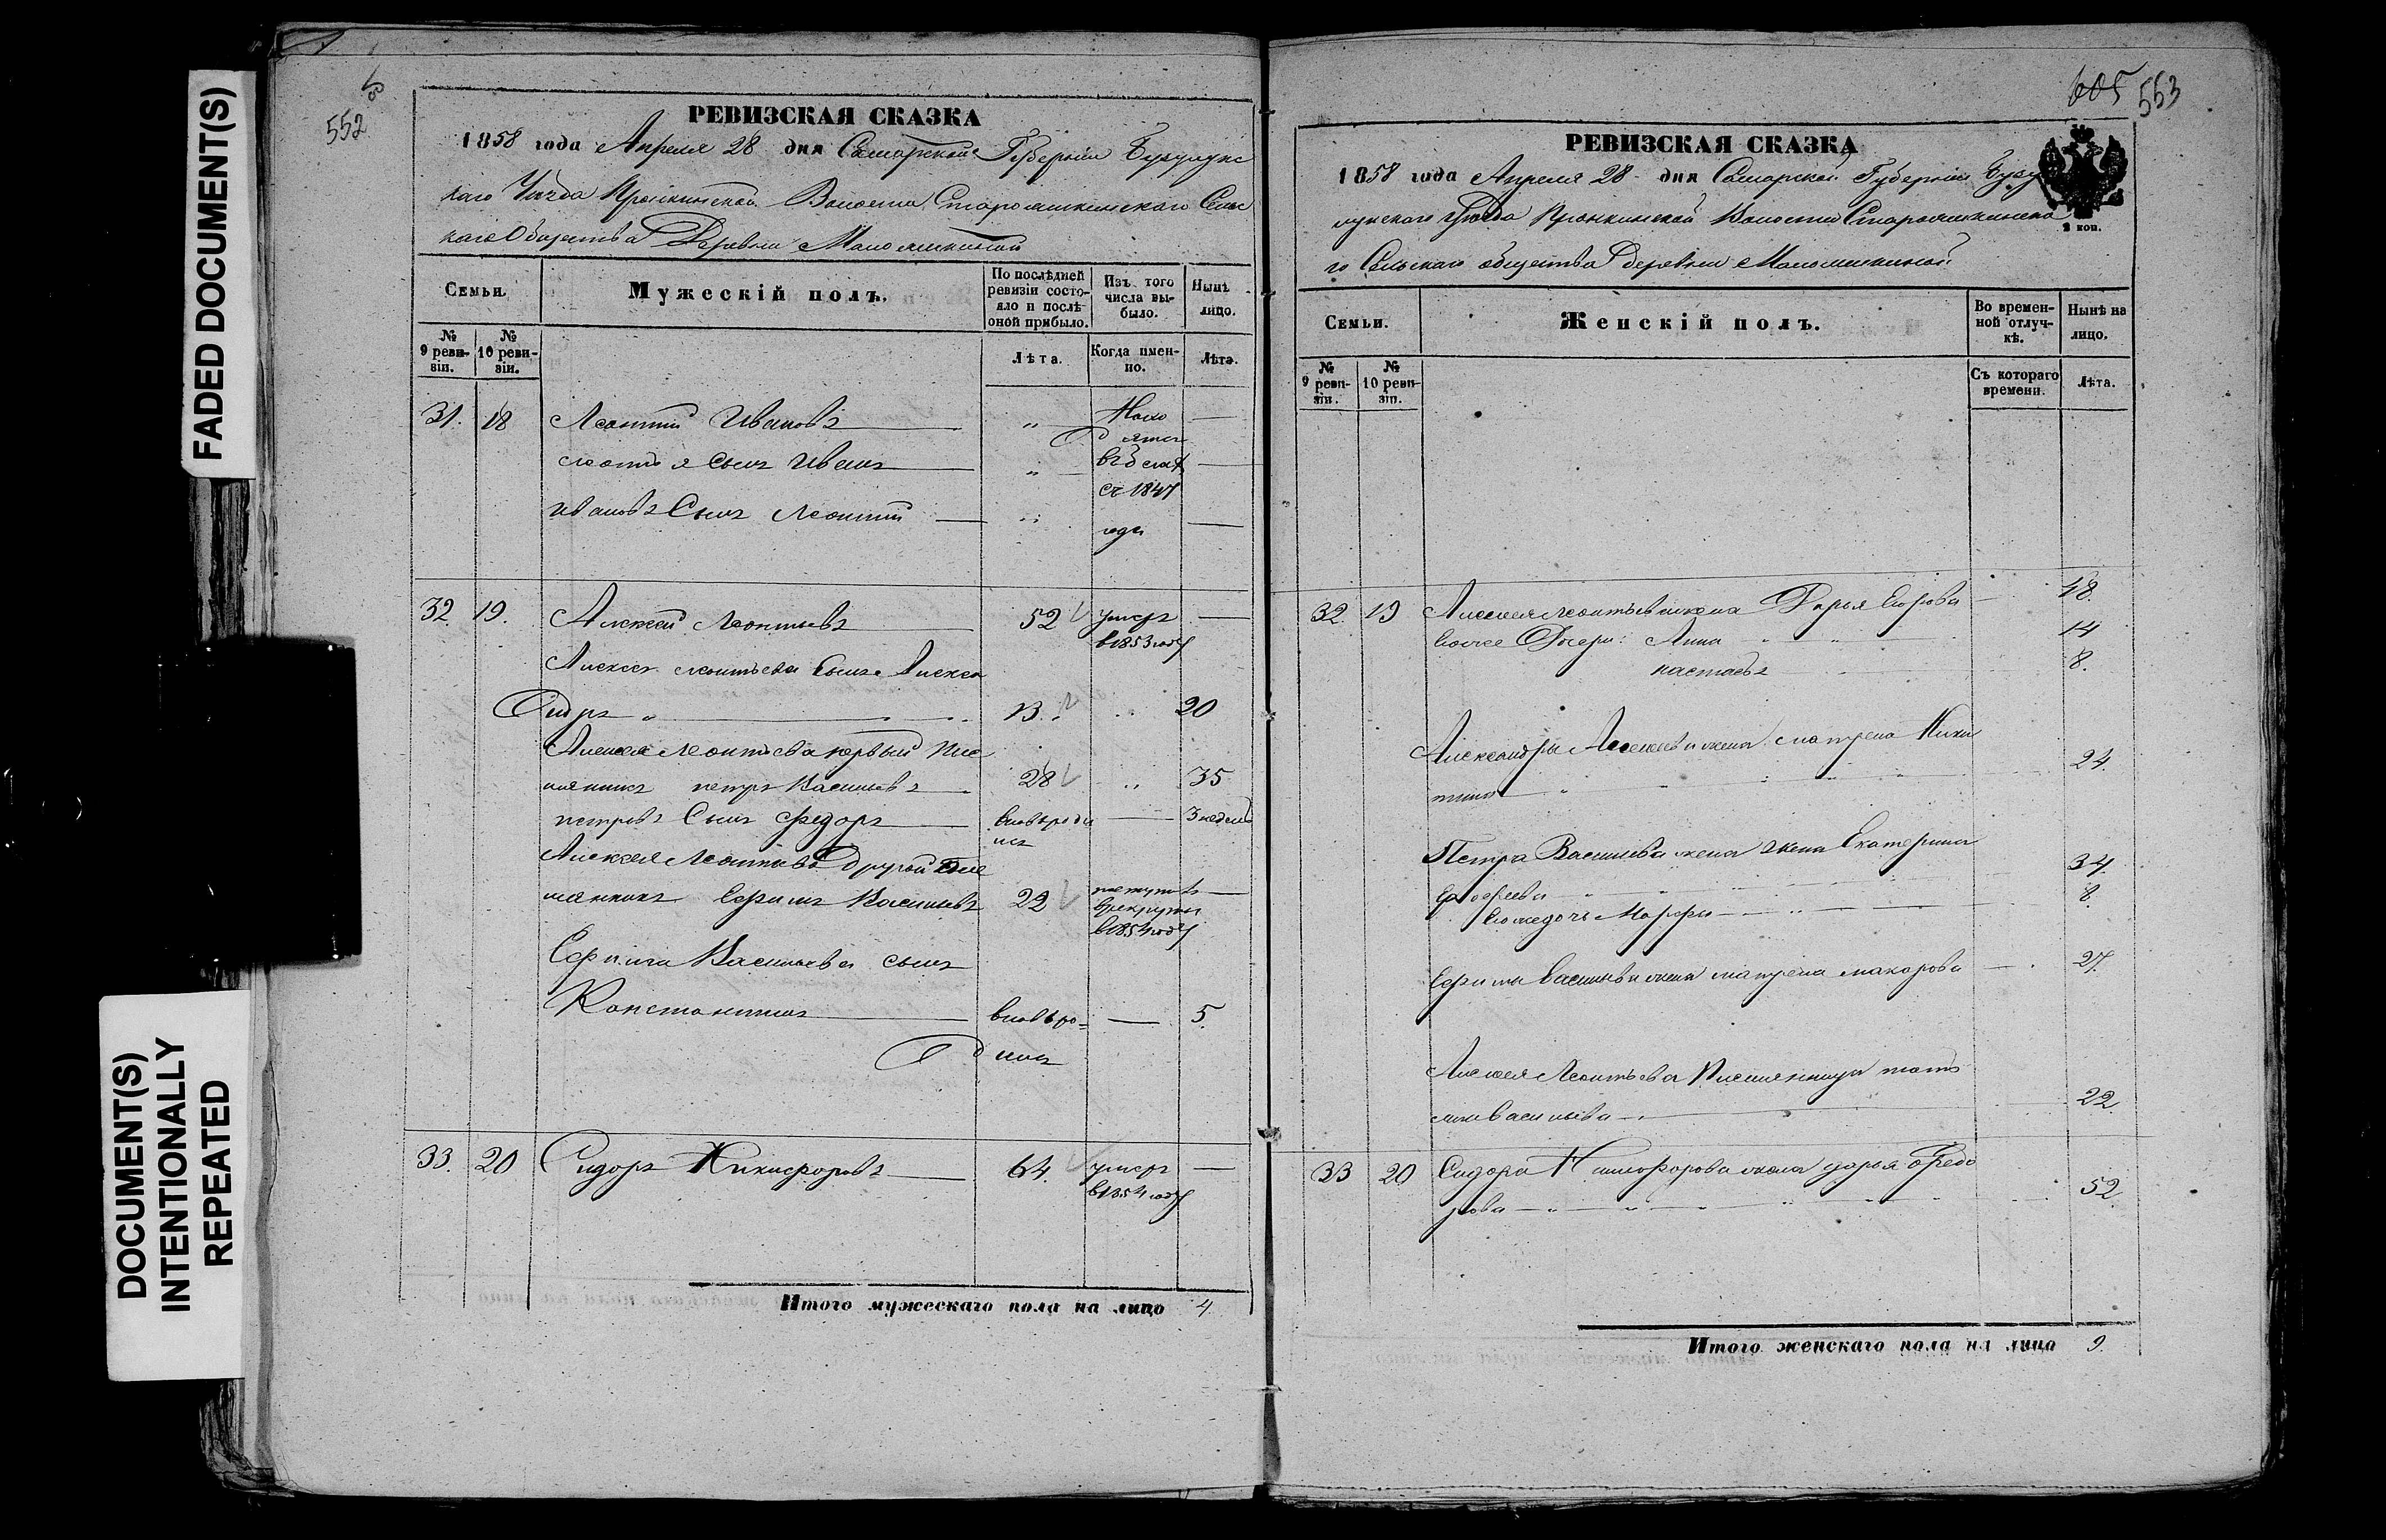 FADED DOCUMENT(S)
DOCUMENT(S)
INTENTIONALLY
REPEATED
552
РЕВИЗСКАЯ СКАЗКА
1858 года Апреля 28 дня Самарской Губернии Бузулукс
каго Уезда Пронкинской Волости Староашкинскаго Сельс
каго Общества Деревни Малоашкиной
Семьи.
Мужескій полъ.
По послѣдней
ревизіи состо-
яло и послѣ
оной прибыло.
Изъ того
числа вы-
было.
Нынѣ
лицо.
№
9 реви-
зіи.
№
10 реви-
зіи.
Лѣта.
Когда имен-
но.
Лѣта.
31. 18 Леонтий Ивановъ „ Нахо —
дятся
Леонтья Сынъ Иванъ „ —
съ 1847
Ивановъ Сынъ Леонтий „ года —
32. 19. Алексей Леонтьевъ 52 умеръ —
в 1853 году
Алексея Леонтьева Сынъ Алекса
ндръ 13 „ 20
Алексея Леонтьева первый пле
мянникъ петръ Васильевъ 28 „ 35
петровъ Сынъ Федоръ вновьроди — 3 недель
лся
Алексея Леонтьева Другой пле
мянникъ Ефимъ Васильевъ 22 поступилъ —
врекруты
в 1854 году
Ефима Васильева сынъ
Константинъ вновьро= — 5.
дился
33. 20 Сидоръ Никифоровъ 64. умеръ —
в 1854 году
Итого мужескаго пола на лицо 4
605 553
РЕВИЗСКАЯ СКАЗКА
2 коп.
1858 года Апреля 28 дня Самарской Губернии Бузу
лукскаго Уезда Пронкинской Волости Староашкинска
го Сельскаго общества деревни Малоашкиной
Семьи.
Женскій полъ.
Во времен-
ной отлуч-
кѣ.
Нынѣ на
лицо.
№
9 реви-
зіи.
№
10 реви-
зіи.
Съ котораго
времени.
Лѣта.
32. 19 Алексея Леонтьева жена Дарья Егорова 48.
Дочери: Анна 14
8.
Александры Алексеева жена матрена Ники
тина 24.
Петра Васильева жена Екатерина
34.
его же дочь Марфа 8.
Ефима Васильева жена матрена макарова 27.
Алексея Леонтьева Племянница тать
яна Васильева 22
33 20 Сидора Никифорова жена дарья Федо
рова 52
Итого женскаго пола на лицо 9.